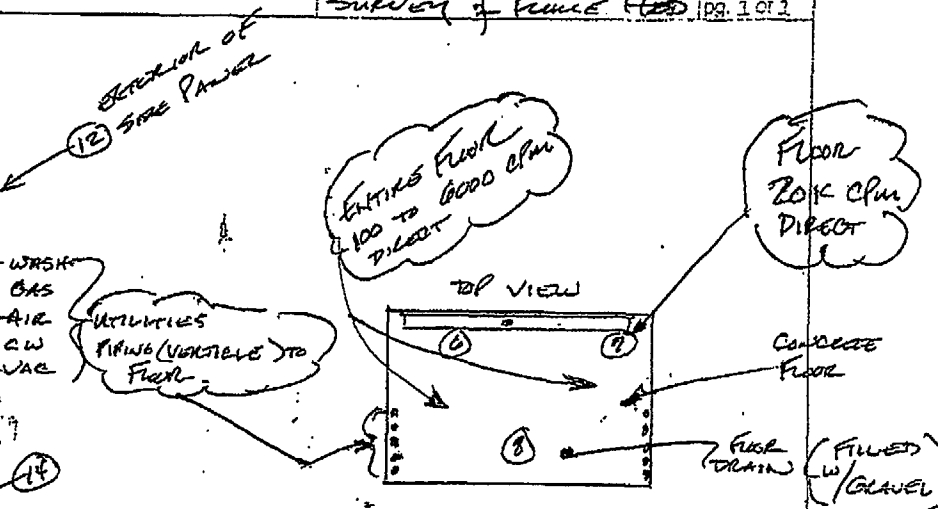 SURVEY of FUME HOOD pg. 1 of 1
EXTERIOR OF
12 SIDE PANEL
ENTIRE FLOOR
100 TO 6000 CPM
DIRECT
FLOOR
20K CPM
DIRECT
WASH
GAS
AIR
CW
VAC
UTILITIES
PIPING (VERTICLE) TO
FLOOR
TOP VIEW
6 7
CONCRETE
FLOOR
8
FLOOR
DRAIN
(FILLED
W/
GRAVEL
14